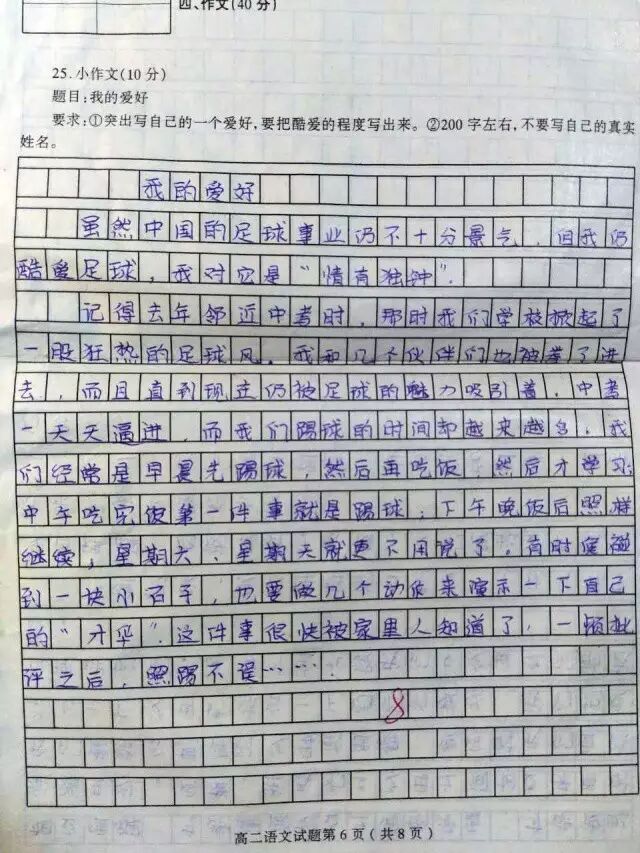 四、作文(40分)
25.小作文(10分)
题目:我的爱好
要求:①突出写自己的一个爱好,要把酷爱的程度写出来。②200字左右,不要写自己的真实
姓名。
我的爱好
虽然中国的足球事业仍不十分景气,但我仍
酷爱足球,我对它是“情有独钟”.
记得去年邻近中考时,那时我们学校掀起了
一股狂热的足球风,我和几个伙伴们也被卷了进
去,而且直到现在仍被足球的魅力吸引着.中考
一天天逼进,而我们踢球的时间却越来越多.我
们经常是早晨先踢球,然后再吃饭,然后才学习.
中午吃完饭第一件事就是踢球,下午晚饭后照样
继续,星期六、星期天就更不用说了。有时候碰
到一块小石子,也要做几个动作来演示一下自己
的“才华”.这件事很快被家里人知道了,一顿批
评之后,照踢不误…….
8
高二语文试题第6页(共8页)